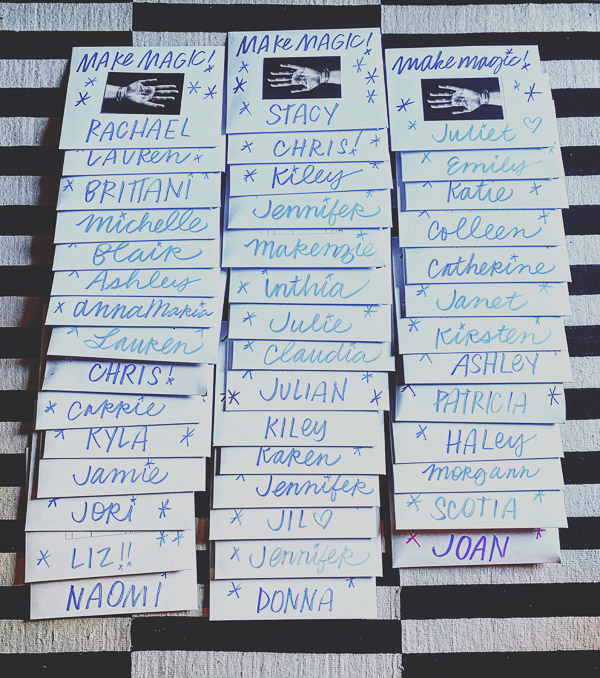 MAKE MAGIC!
RACHAEL
LAUREN
BRITTANI
Michelle
Blair
Ashley
annamaria
Lauren
CHRIS!
CARRIE
KYLA
Jamie
JORI
LIZ!!
NAOMI
MAKE MAGIC!
STACY
CHRIS!
Kiley
Jennifer
makenzie
inthia
Julie
Claudia
JULIAN
KILEY
Karen
Jennifer
JIL♡
Jennifer
DONNA
makemagic!
Juliet ♡
Emily
Katie
Colleen
Catherine
Janet
Kirsten
ASHLEY
PATRICIA
HALey
morgann
SCOTIA
JOAN